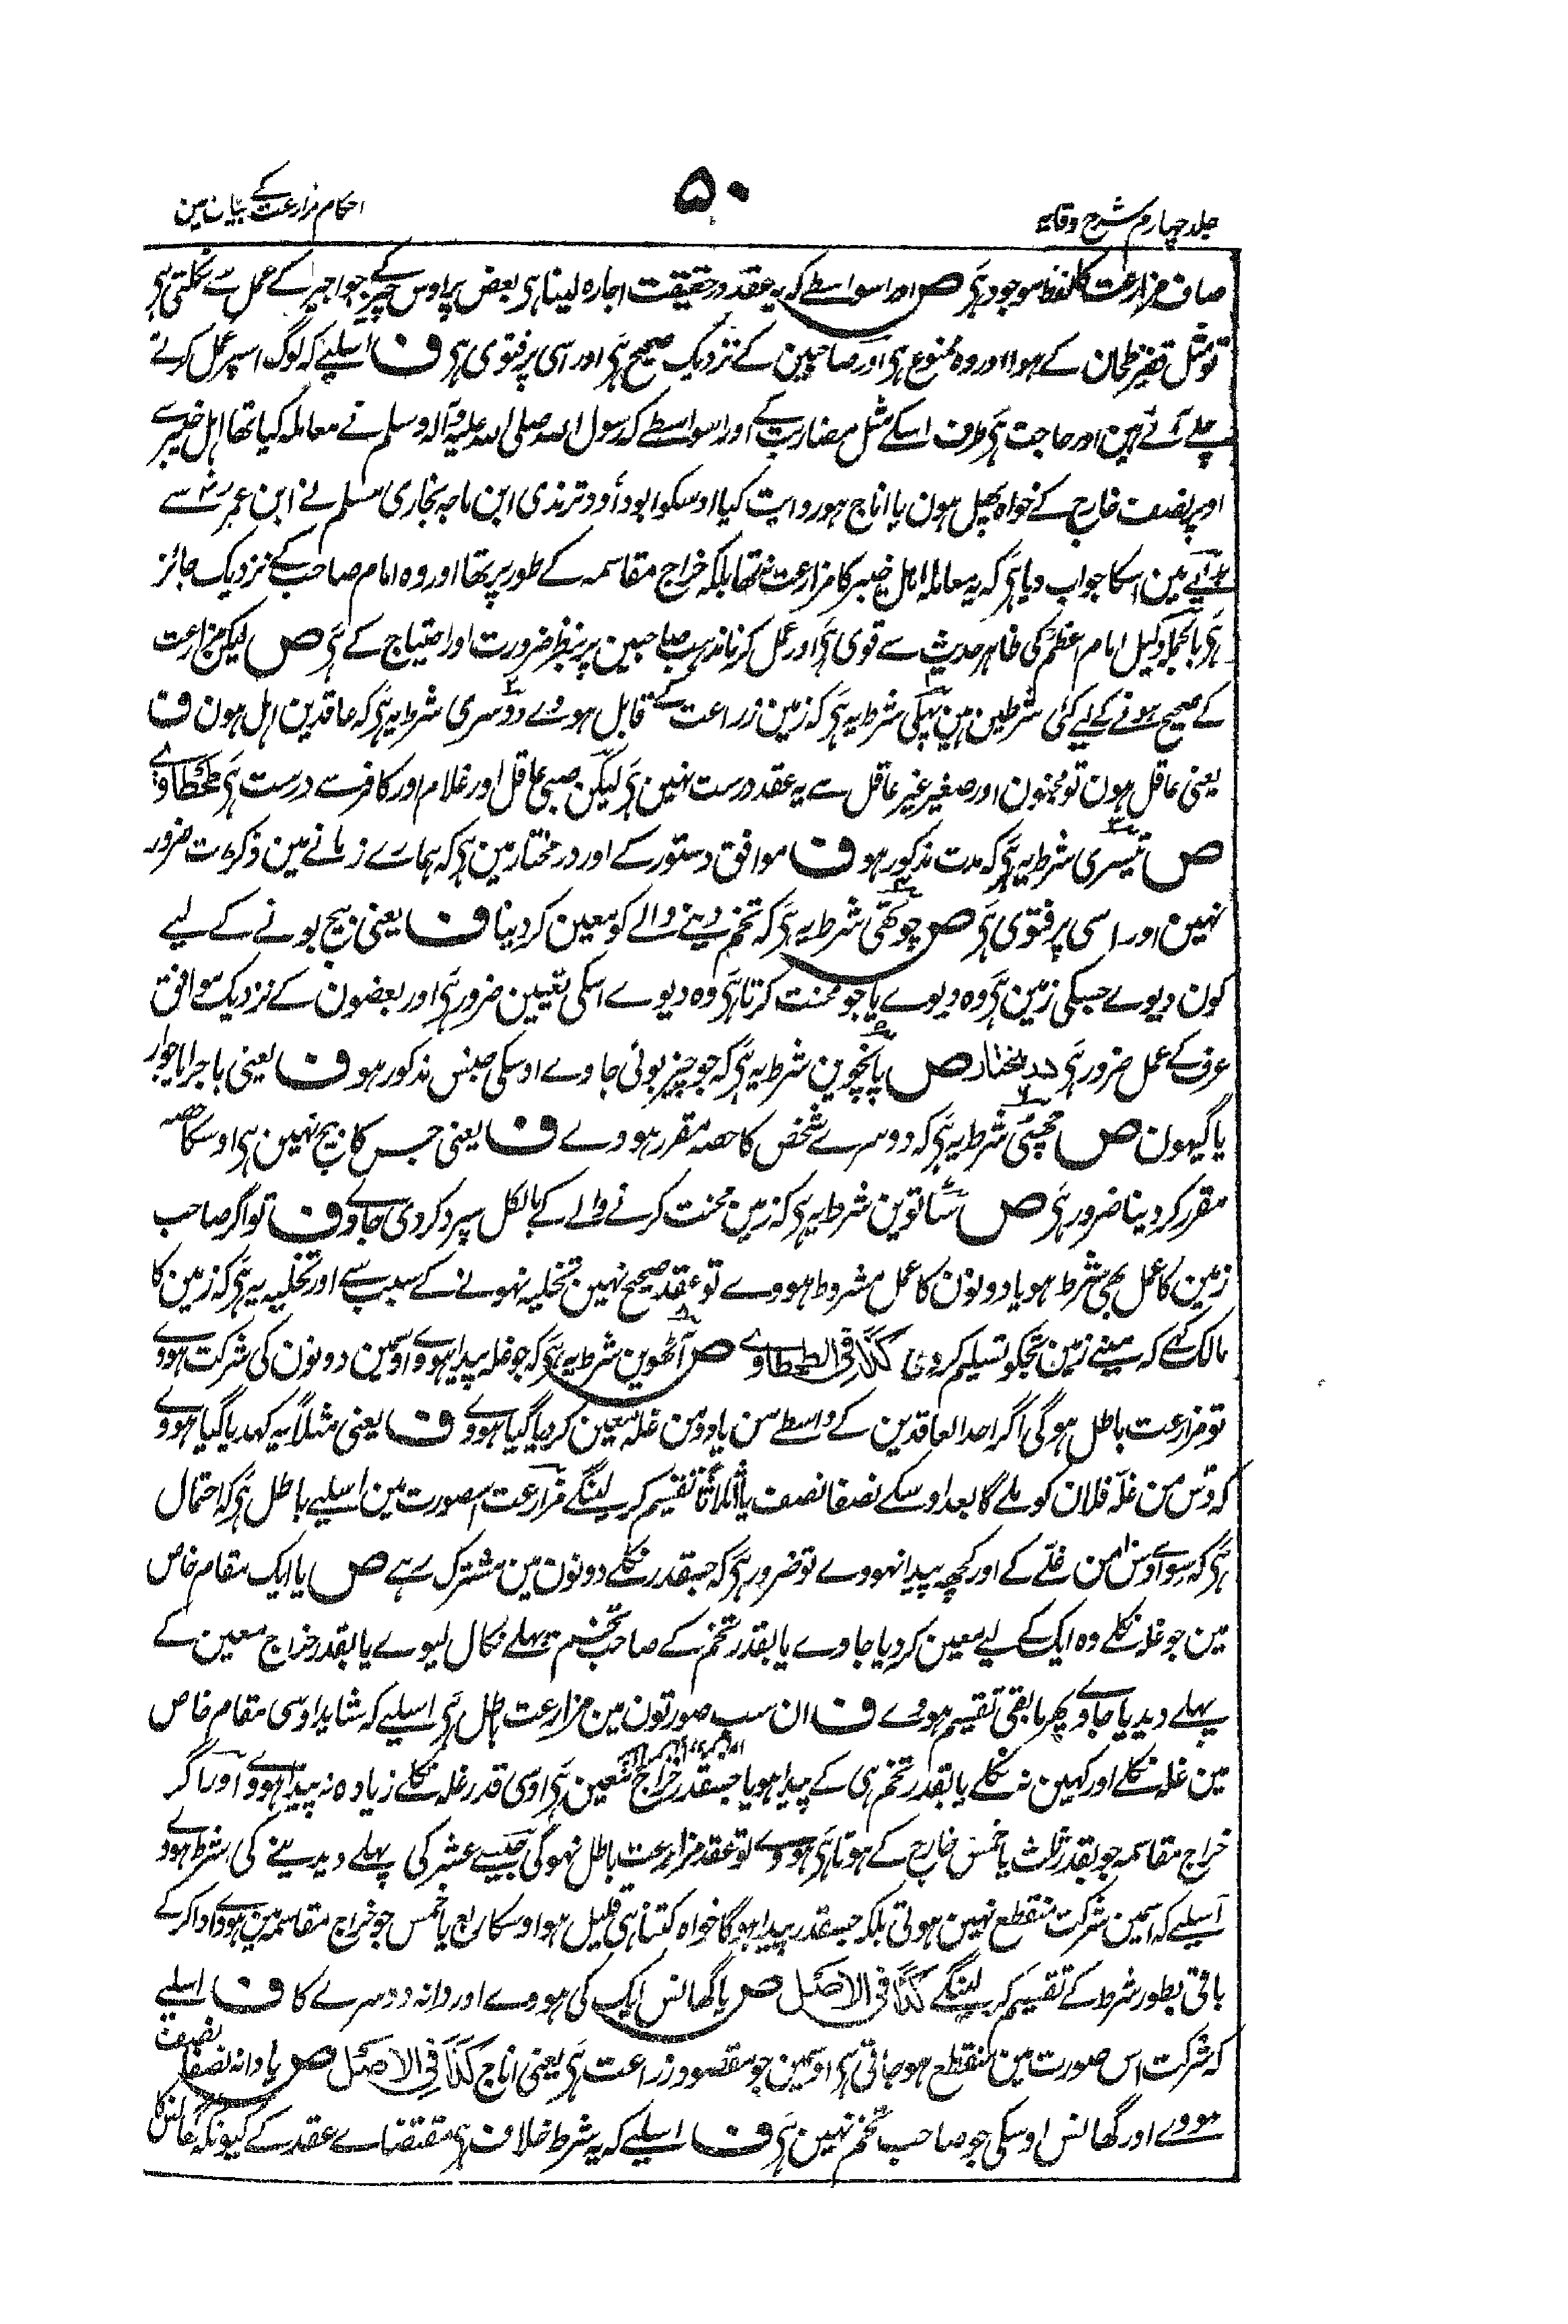 جلد چہارم شرح وقایہ
۵۰
احکام مزارعت کے بیان مین
صاف مزارعت کا لفظ موجود ہی ص اور اسواسطے کہ یہ عقد در حقیقت اجارہ لینا ہی بعض پر اوس چیز کے جو اجیر کے عمل سے نکلتی ہی
تو مثل قفیز طحان کے ہوا اور وہ ممنوع ہی اور صاحبین کے نزدیک صحیح ہی اور اسی پر فتوی ہی ف اسلیے کہ لوگ اسپر عمل کرتے
چلے آئے ہین اور حاجت ہی طرف اسکے مثل مضاربت کے اور اسواسطے کہ رسول اللہ صلی اللہ علیہ وآلہ وسلم نے معاملہ کیا تھا اہل خیبر سے
اوپر نصف خارج کے خواہ پھل ہون یا اناج ہو روایت کیا اوسکو ابوداؤد ترمذی ابن ماجہ بخاری مسلم نے ابن عمر رض سے
ہدایے مین اسکا جواب دیا ہی کہ یہ معاملہ اہل خیبر کا مزارعت نتھا بلکہ خراج مقاسمہ کے طور پر تھا اور وہ امام صاحب کے نزدیک جائز
ہی بالجملہ دلیل امام اعظم کی ظاہر حدیث سے قوی ہی اور عمل کرنا مذہب صاحبین پر بنظر ضرورت اور احتیاج کے ہی ص لیکن مزارعت
کے صحیح ہونے کے لیے کئی شرطین ہین پہلی شرط یہ ہی کہ زمین زراعت کے قابل ہووے دوسری شرط یہ ہی کہ عاقدین اہل ہون ف
یعنی عاقل ہون تو مجنون اور صغیر غیر عاقل سے یہ عقد درست نہین ہی لیکن صبی عاقل اور غلام اور کافر سے درست ہی طحطاوے
ص تیسری شرط یہ ہی کہ مدت مذکور ہو ف موافق دستور کے اور درمختار مین ہی کہ ہمارے زمانے مین ذکر مدت ضرور
نہین اور اسی پر فتوی ہی ص چوتھی شرط یہ ہی کہ تخم دینے والے کو معین کر دینا ف یعنی بیج بونے کے لیے
کون دیوے جسکی زمین ہی وہ دیوے یا جو محنت کرتا ہی وہ دیوے اسکی تعیین ضرور ہی اور بعضون کے نزدیک موافق
عرف کے عمل ضرور ہی درمختار ص پانچوین شرط یہ ہی کہ جو چیز بوئی جاوے اوسکی جنس مذکور ہو ف یعنی باجرا یا جوار
یا گیہون ص چھٹی شرط یہ ہی کہ دوسرے شخص کا حصہ مقرر ہووے ف یعنی جس کا بیج نہین ہی اوسکا حصہ
مقرر کر دینا ضرور ہی ص ساتوین شرط یہ ہی کہ زمین محنت کرنے والے کے بالکل سپرد کر دی جاوے ف تو اگر صاحب
زمین کا عمل بھی شرط ہو یا دونون کا عمل مشروط ہووے تو عقد صحیح نہین تخلیہ نہونے کے سبب سے اور تخلیہ یہ ہی کہ زمین کا
مالک کہے کہ مینے زمین تجکو تسلیم کر دی کذا فی الطحطاوے ص آٹھوین شرط یہ ہی کہ جو غلہ پیدا ہووے اوسمین دونون کی شرکت ہووے
تو مزارعت باطل ہوگی اگر احد العاقدین کے واسطے من یا دو من غلہ معین کر دیا گیا ہووے ف یعنی مثلاً یہ کہدیا گیا ہووے
کہ دس من غلہ فلان کو ملے گا بعد اوسکے نصفا نصف یا اثلاثا تقسیم کر لینگے مزارعت اسصورت مین اسلیے باطل ہی کہ احتمال
ہی کہ سواے دس من غلے کے اور کچھ پیدا نہووے تو ضرور ہی کہ جسقدر نکلے دونون مین مشترک رہے ص یا ایک مقام خاص
مین جو غلہ نکلے وہ ایک کے لیے معین کر دیا جاوے یا بقدر تخم کے صاحب تخم پہلے نکال لیوے یا بقدر خراج معین کے
پہلے دیدیا جاوے پھر مابقی تقسیم ہووے ف ان سب صورتون مین مزارعت باطل ہی اسلیے کہ شاید اوسی مقام خاص
مین غلہ نکلے اور کہین نہ نکلے یا بقدر تخم ہی کے پیدا ہو یا جسقدر خراج معین ہی اوسی قدر غلہ نکلے زیادہ نہ پیدا ہووے اور اگر
خراج مقاسمہ جو بقدر ثلث یا خمس خارج کے ہوتا ہی ہووے تو عقد مزارعت باطل نہوگی جیسے عشر کی پہلے دیدینے کی شرط ہووے
اسلیے کہ اسمین شرکت منقطع نہین ہوتی بلکہ جسقدر پیدا ہوگا خواہ کتنا ہی قلیل ہو اوسکا ربع یا خمس جو خراج مقاسمہ مین ہووے ادا کر کے
باقی بطور شرط کے تقسیم کر لینگے کذا فی الاصل ص یا گھانس ایک کی ہووے اور دانہ دوسرے کا ف اسلیے
کہ شرکت اس صورت مین منقطع ہو جاتی ہی اوسمین جو مقصود زراعت ہی یعنی اناج کذا فی الاصل ص یا دانہ نصفا نصف
ہووے اور گھانس اوسکی جو صاحب تخم نہین ہی ف اسلیے کہ یہ شرط خلاف ہی مقتضاے عقد کے کیونکہ گھانس کا